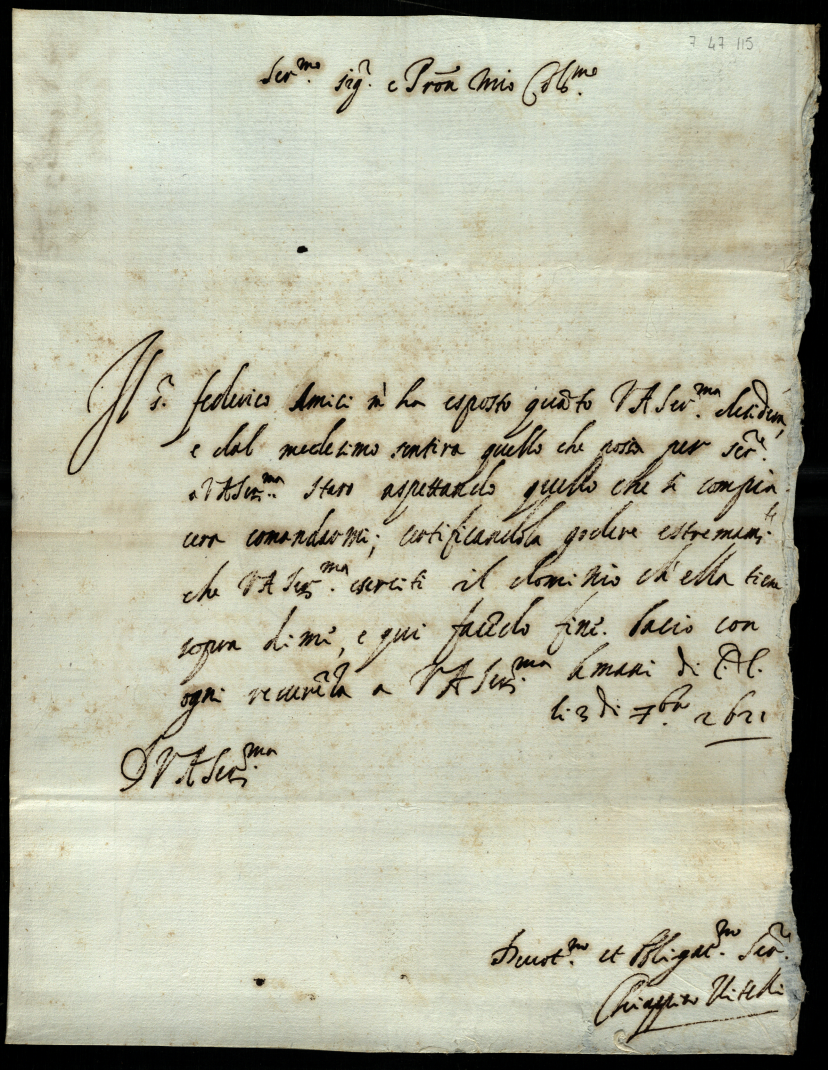 7 47 115
Ser.mo Sig.r e Pron Mio Col.mo
Il s.r Federico Amici m'ha esposto quãto V A Ser.ma desidera,
e dal medesimo sentira quello che possa per ser.re
a V A Ser.ma Staro aspettando quello che si compia
cera comandarmi; certificandola godere estremam.te
che V A Ser.ma eserciti il dominio ch'ella tiene
sopra di me, e qui facẽdo fine. Bacio con
ogni reverẽza a V A Ser.ma le mani di
li 3 di 7.bre 1621
D V A Ser.ma
Devot.mo et Obligat.mo Ser.re
Chiappino Vitelli